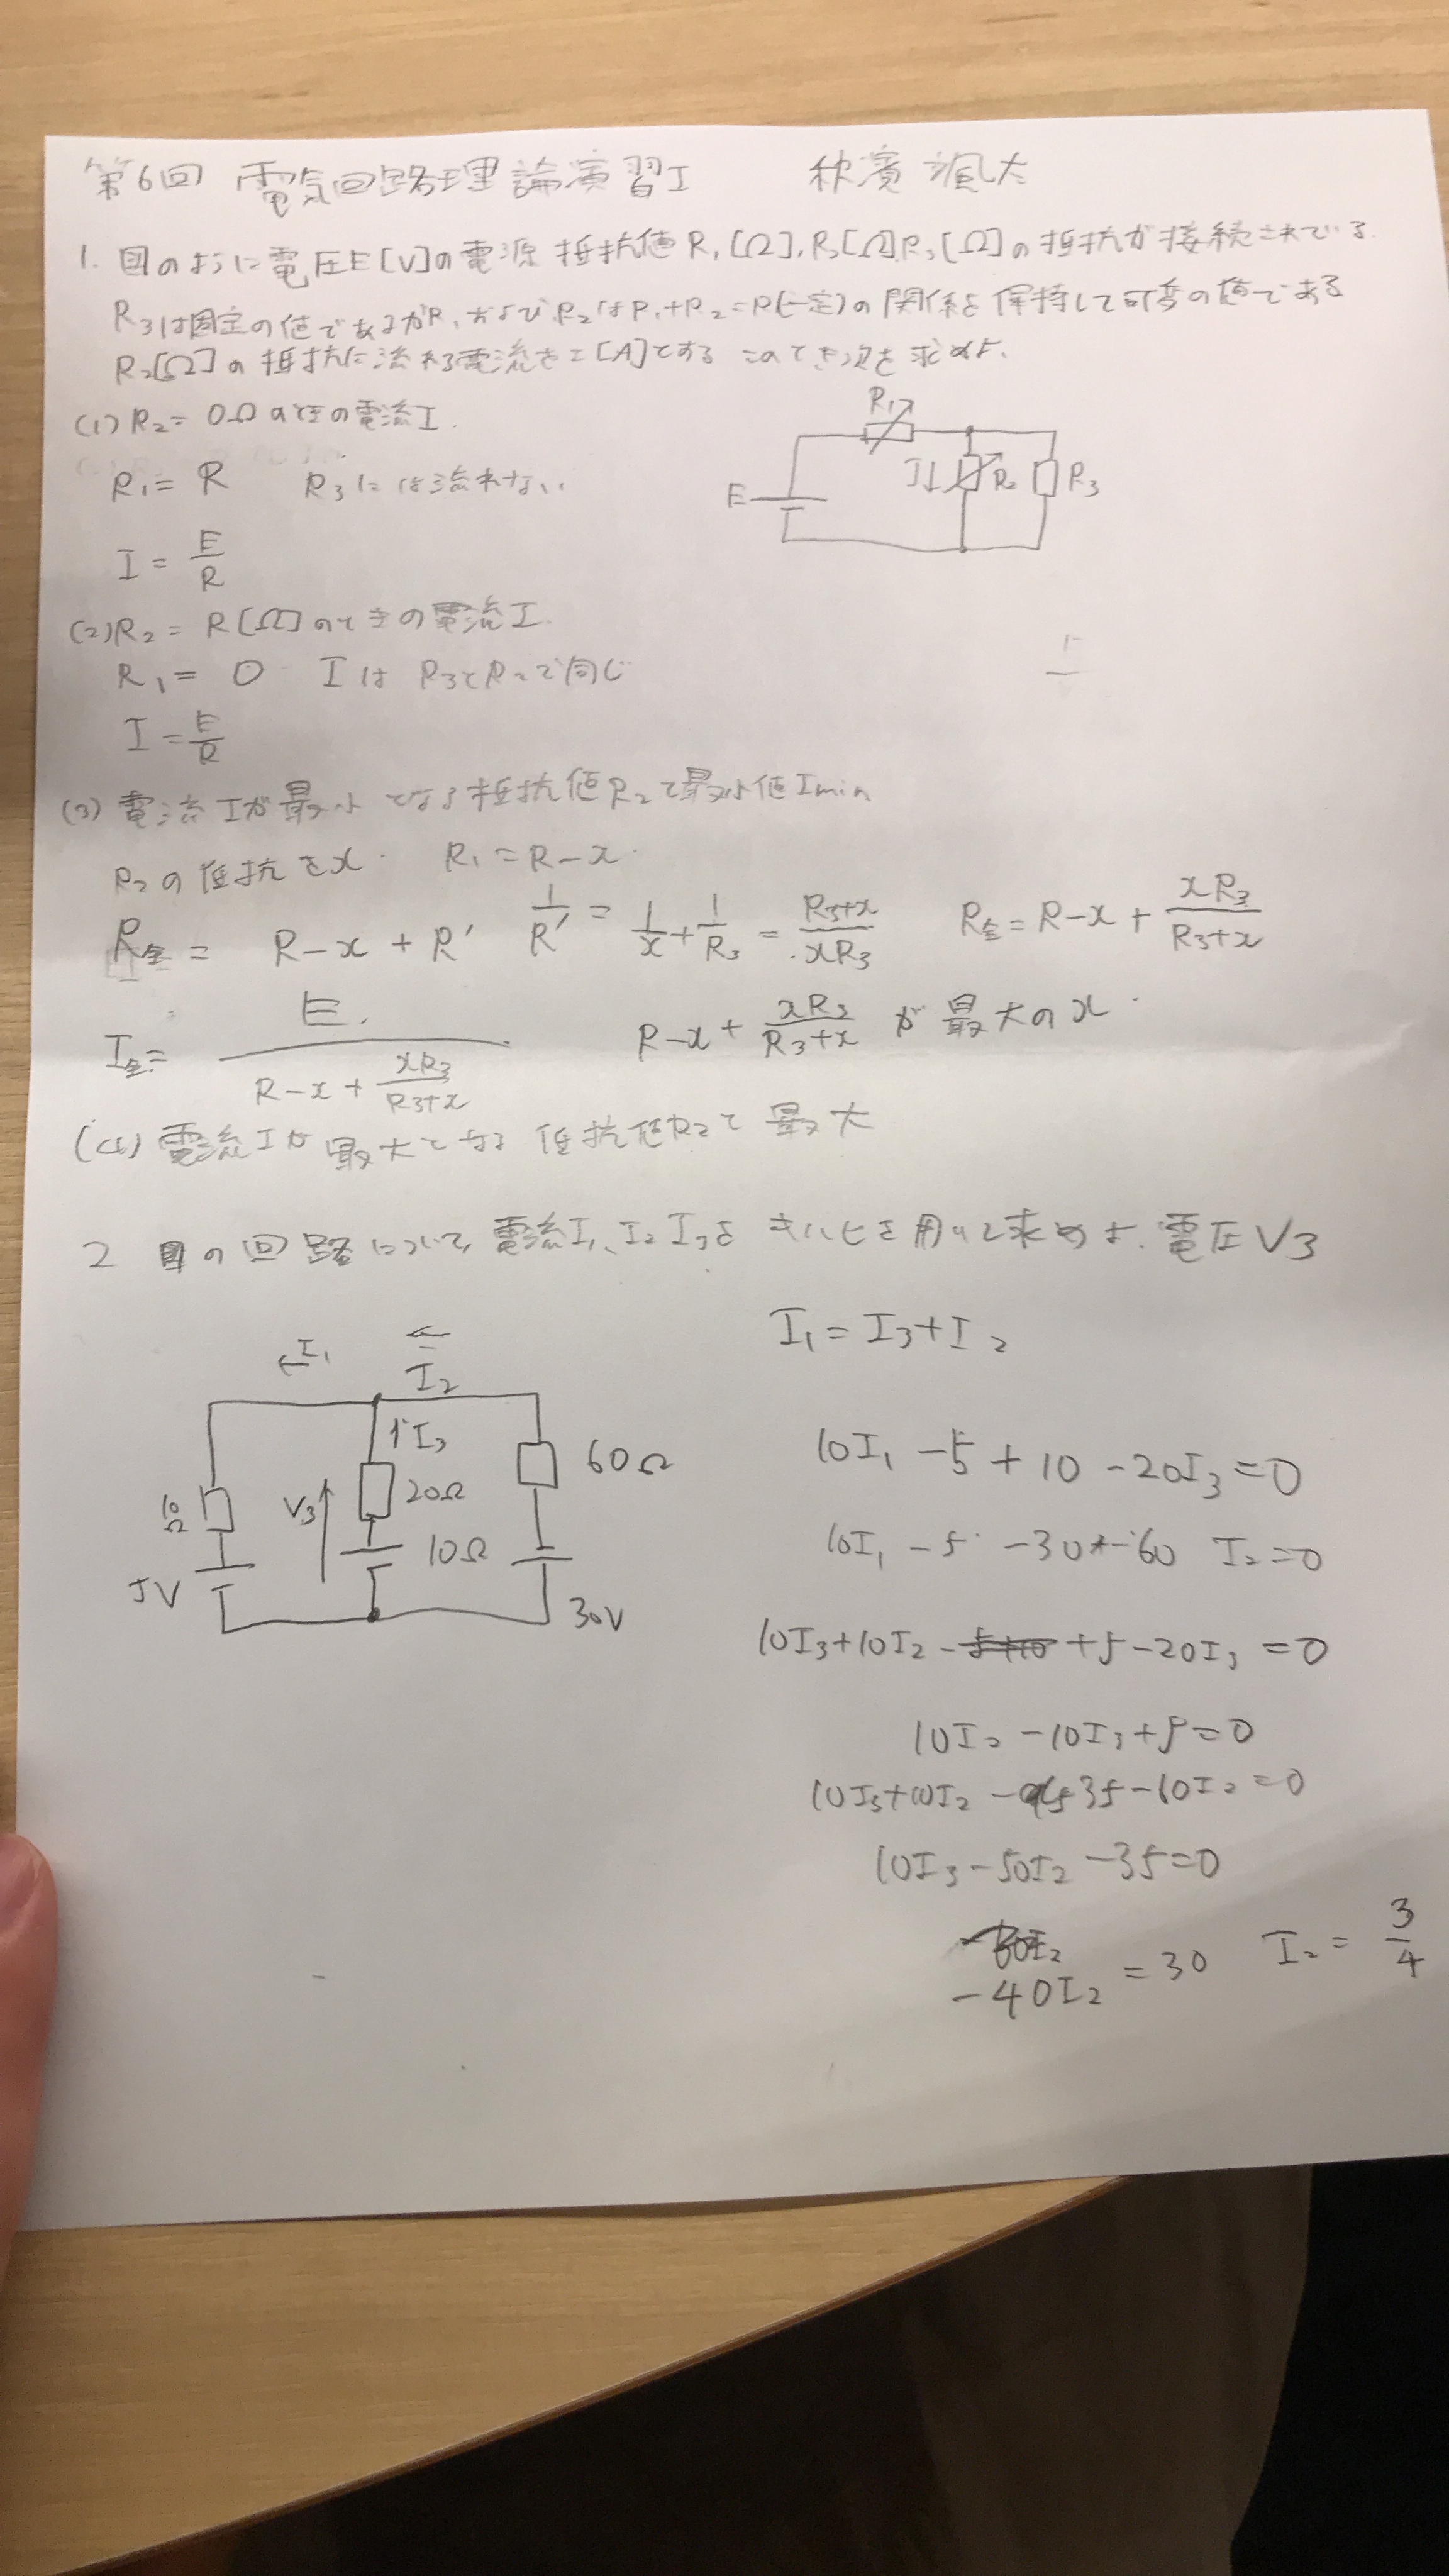 第6回 電気回路理論演習I 秋濱 颯太
1. 図のように電圧E[V]の電源 抵抗値R₁[Ω],R₂[Ω]R₃[Ω]の抵抗が接続されている.
R₃は固定の値であるがR₁およびR₂はR₁+R₂=R(一定)の関係を保持して可変の値である
R₂[Ω]の抵抗に流れる電流をI[A]とする このとき次を求めよ.
(1) R₂= 0Ωのときの電流I.
R₁= R R₃には流れない
R₁
E I↓ R₂ R₃
I = E/R
(2) R₂ = R[Ω]のときの電流I.
R₁= 0 IはR₃とR₂で同じ
I = E/R
(3) 電流Iが最小となる抵抗値R₂と最小値Imin
R₂の低抗をx. R₁=R-x
R全= R-x+R' 1/R' = 1/x + 1/R₃ = (R₃+x)/(xR₃) R全=R-x+ xR₃/(R₃+x)
I全= E/(R-x+ xR₃/(R₃+x)) R-x+ xR₃/(R₃+x) が最大のx
(4) 電流Iが最大となる低抗値R₂と最大
2 図の回路について,電流I₁、I₂ I₃を キルヒを用いて求めよ. 電圧V₃
I₁=I₃+I₂
←I₁ ← I₂
↑I₃ 60Ω
10Ω V₃ 20Ω
10Ω
5V 30V
10I₁ -5+10 -20I₃=0
10I₁ -5 -30 -60 I₂=0
10I₃+10I₂ - +5-20I₃ =0
10I₂ -10I₃+5=0
10I₃+10I₂ - 35-60I₂=0
10I₃-50I₂ -35=0
-40I₂ = 30 I₂= 3/4